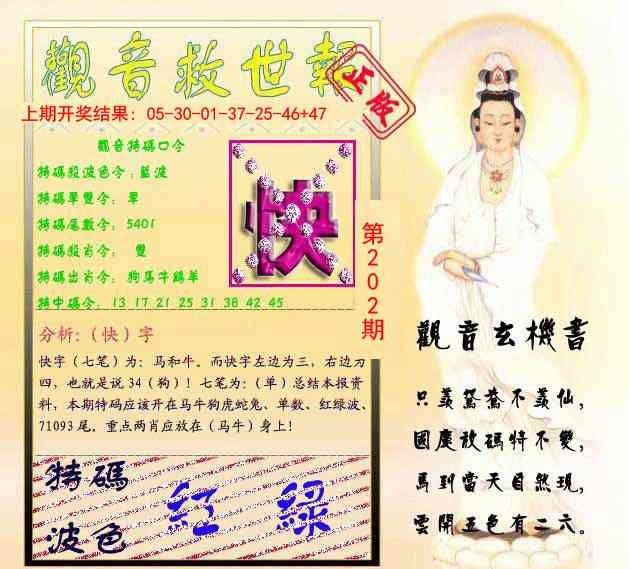 觀音救世報
正版
上期开奖结果：05-30-01-37-25-46+47
觀音特碼口令
特碼殺波色令：藍波
特碼單雙令： 單
特碼尾數令： 5401
特碼殺肖令： 雙
特碼出肖令： 狗馬牛鷄羊
特中碼令： 13 17 21 25 31 38 42 45
快
第202期
分析：（快）字
快字（七笔）为：马和牛。而快字左边为三，右边为
四，也就是说 34（狗）！七笔为：（单）总结本报资
料，本期特码应该开在马牛狗虎蛇兔、单数、红绿波、
71093 尾。重点两肖应放在（马牛）身上！
特碼
波色
紅 綠
觀音玄機書
只羨鴛鴦不羨仙，
國慶放碼將不變，
馬到當天自然現，
雲開五色有二六。